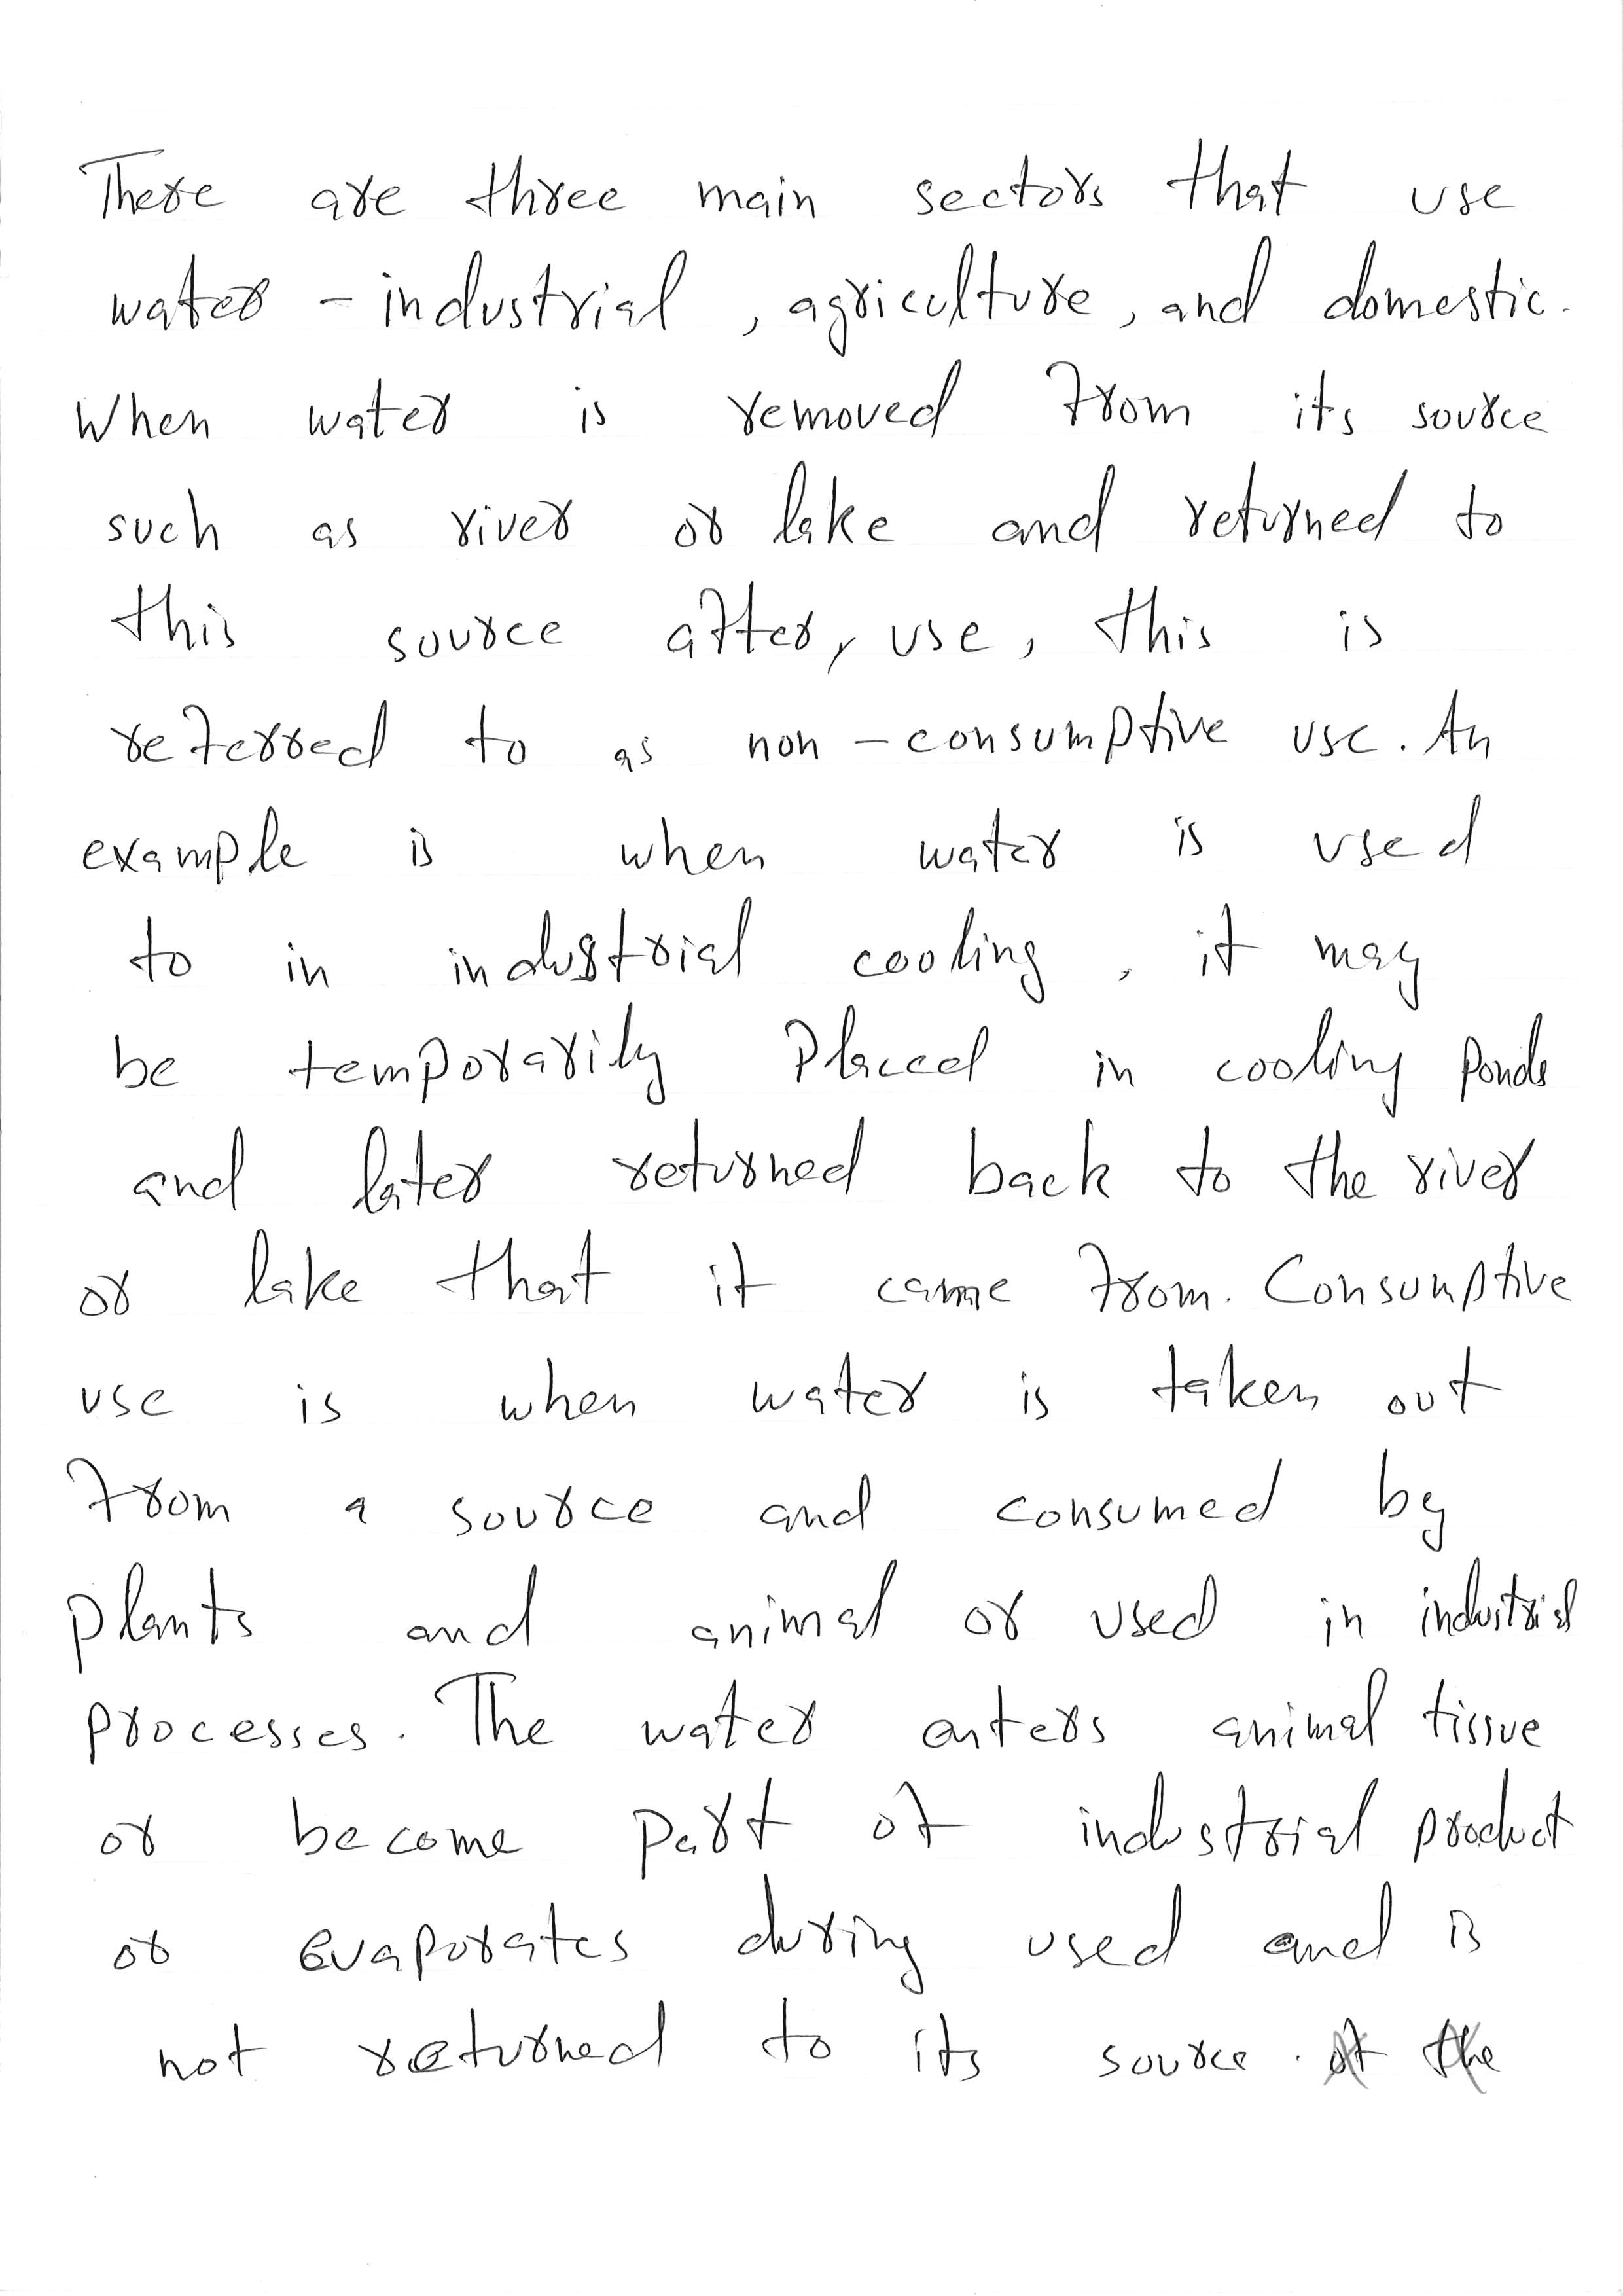 There are three main sectors that use
water - industrial, agriculture, and domestic.
When water is removed from its source
such as river or lake and returned to
this source after, use, this is
referred to as non-consumptive use. An
example is when water is used
to in industrial cooling, it may
be temporarily placed in cooling ponds
and later returned back to the river
or lake that it came from. Consumptive
use is when water is taken out
from a source and consumed by
plants and animal or used in industrial
processes. The water enters animal tissue
or become part of industrial product
or evaporates during used and is
not returned to its source.